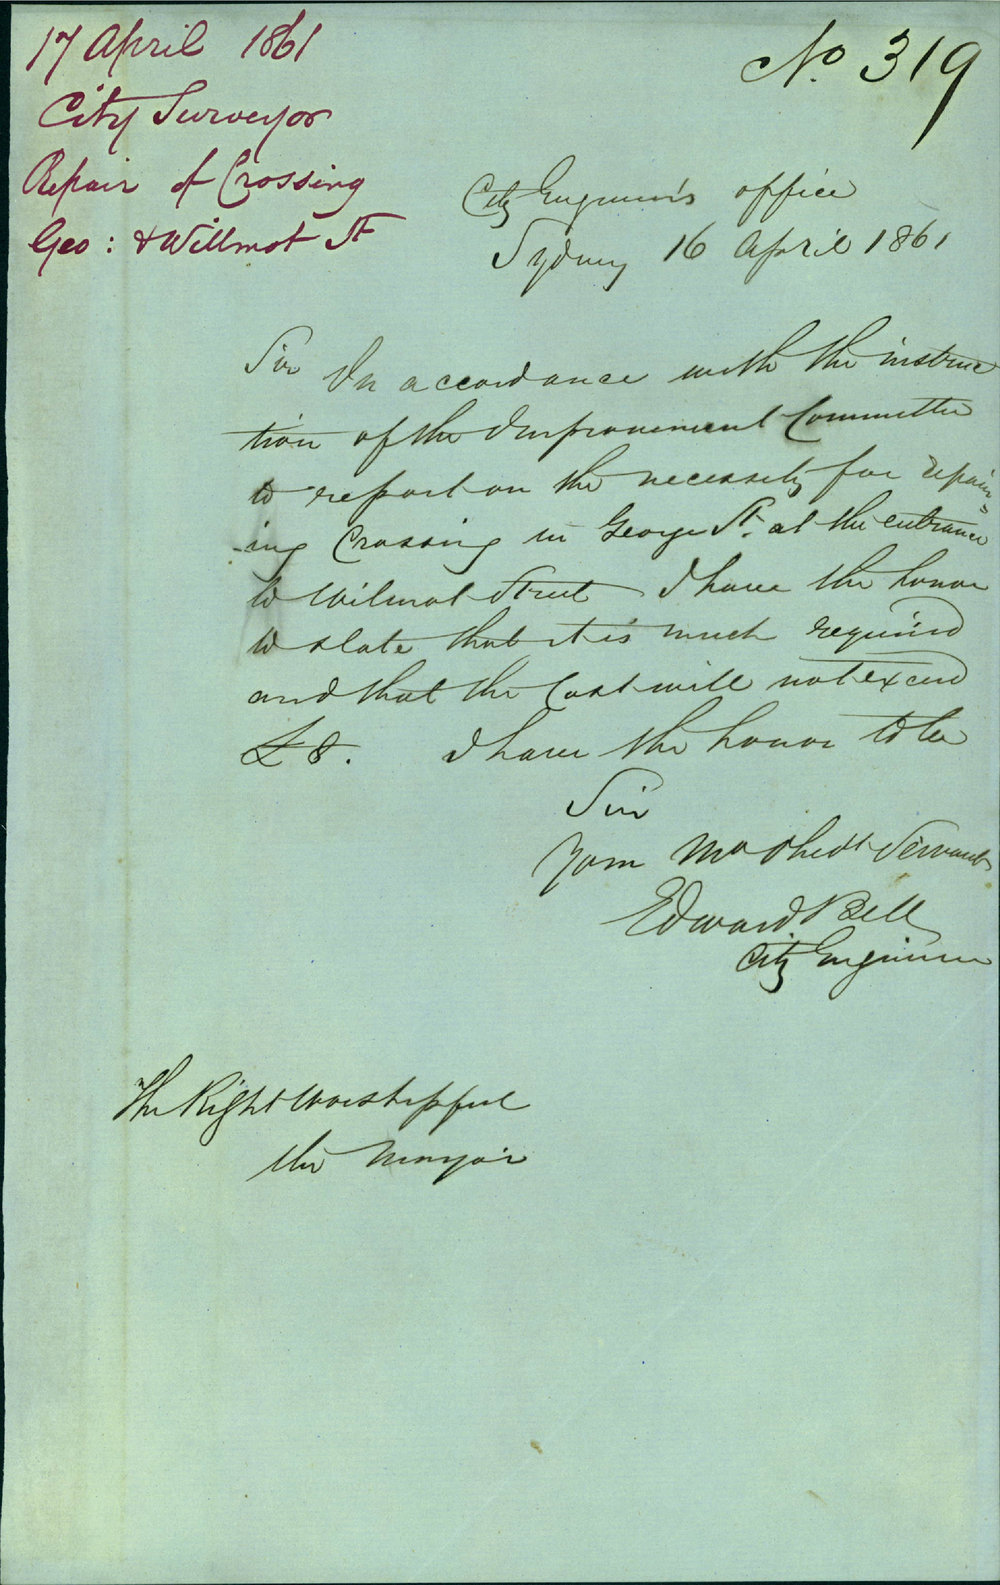 17 April 1861
City Surveyor
Repair of Crossing
Geo: & Willmot St
No. 319
City Engineer's office
Sydney 16 April 1861
Sir In accordance with the instruc
tion of the Improvement Committee
to report on the necessity for repair=
-ing Crossing in George St. at the entrance
to Wilmot Street I have the honor
to state that it is much required
and that the Cost will not exceed
£8. I have the honor to be
Sir
Your Mo Obedt Servant
Edward Bell
City Engineer
The Right Worshipful
the Mayor